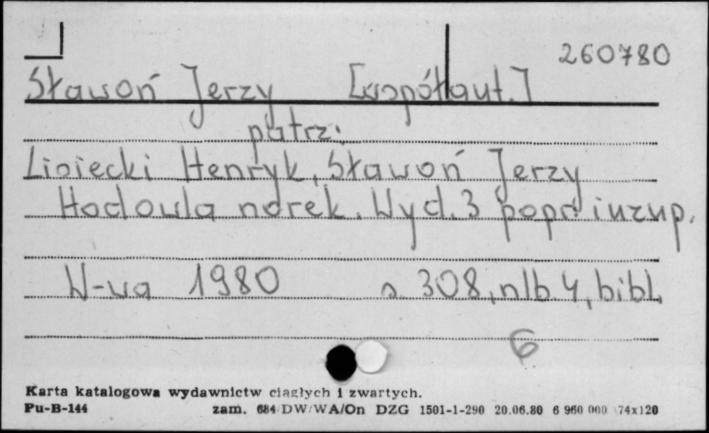 260780
Sławoń Jerzy [współaut.]
patrz:
Lisiecki Henryk, Sławoń Jerzy
Hodowla norek. Wyd. 3 popr i uzup.
W-wa 1980 s. 308, nlb. 4, bibl.
6
Karta katalogowa wydawnictw ciągłych i zwartych.
Pu-B-144 zam. 684 DW/WA/On DZG 1501-1-290 20.06.80 6 960 000 74x120